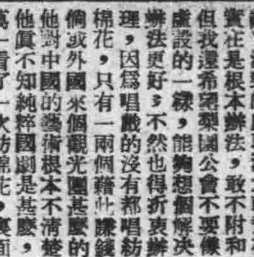 實在是根本辦法，敢不附和
但我還希望梨園公會不要像
虛設的一樣，能夠想個解决
辦法更好；不然也得折衷辦
理，因爲唱戲的沒有都唱紡
棉花，只有一兩個藉此賺錢
倘或外國來個觀光團甚麽的
他對中國的藝術根本不淸楚
他眞不知純粹國劇是甚麽，
萬一看了一次紡棉花，裏面